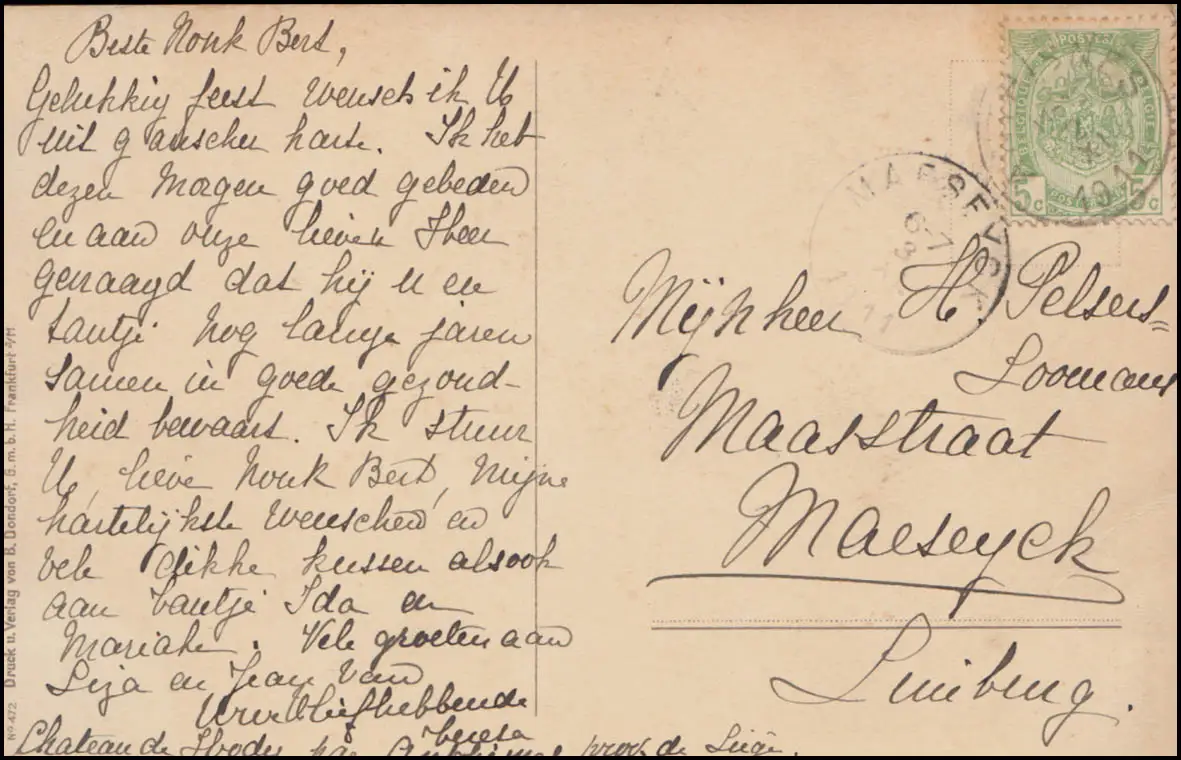 Beste Nonk Bert,
Gelukkig feest wensch ik U
uit g anscher harte. Ik heb
dezen morgen goed gebeden
en aan onze lieven Heer
gevraagd dat hij u en
tantje nog lange jaren
samen in goede gezond-
heid bewaart. Ik stuur
U, lieve Nonk Bert, mijne
hartelijkste wenschen en
vele dikke kussen alsook
aan tantje Ida en
Marieke. Vele groeten aan
Liza en Jean van
Uwe liefhebbende
Teresa
Chateau de Hody par Anthisnes prov. de Liège.
Mijnheer H. Pelsers=
Loomans
Maasstraat
Maeseyck
Limburg.
POSTES
BELGIQUE
BELGIE
5 c 5 c
1911
MAESEYCK
11
Nº 472 Druck u. Verlag von B. Dondorf, G.m.b.H. Frankfurt a/M